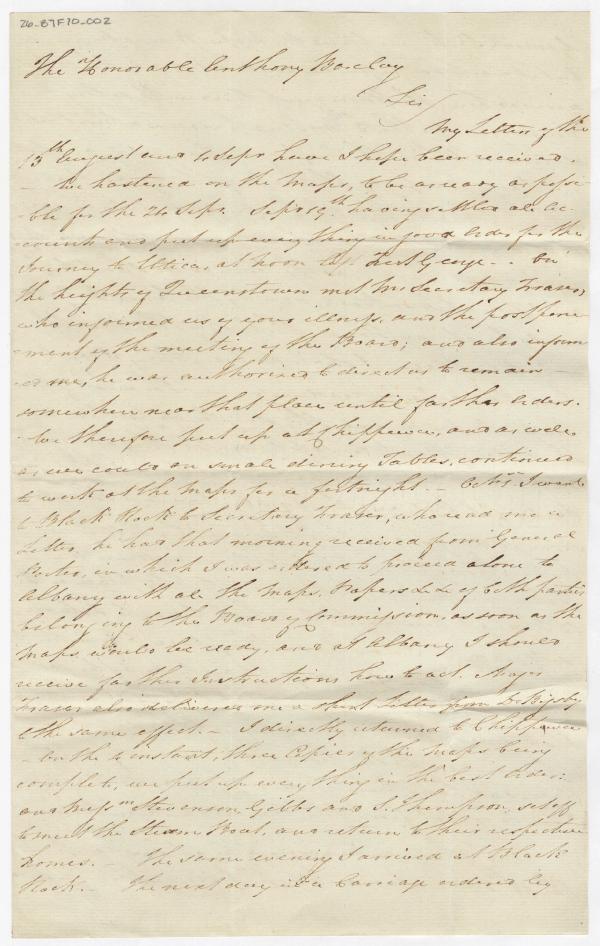 26-B7F10-002
The Honorable Anthony Barclay
Sir
My Letters of the
15th August and 4 Septr have I hope been received.
– We hastened on the Maps, to be as ready as possi
ble for the 24 Septr. Septr 19th having settled all ac
counts and put up every thing in good order for the
Journey to Utica, at noon left Fort George – . On
the heights of Queenstown met Mr Secretary Fraser,
who informed us of your illness, and the postpone
ment of the meeting of the Board; and also inform
ed me, he was authorised to direct us to remain
somewhere near that place until farther orders.
We therefore put up at Chippewa, and as well
as we could on small dining Tables, continued
to work at the Maps for a fortnight. – Octr I went
to Black Rock to Secretary Fraser, who read me a
Letter, he had that morning received from General
Porter, in which I was ordered to proceed alone to
Albany with all the Maps, Papers &c &c of both parties
belonging to the Board of Commission, as soon as the
Maps would be ready, and at Albany I should
receive farther Instructions how to act. Major
Fraser also delivered me a short Letter from Dr Bigsby
to the same effect. – I directly returned to Chippewa
– On the instant, three Copies of the Maps being
complete, we put up every thing in the best order:
and Messrs Stevenson, Gibbs and S. Thompson, set off
to meet the Steam Boat, and return to their respective
homes. – The same evening I arrived at Black
Rock. – The next day in a Carriage ordered by